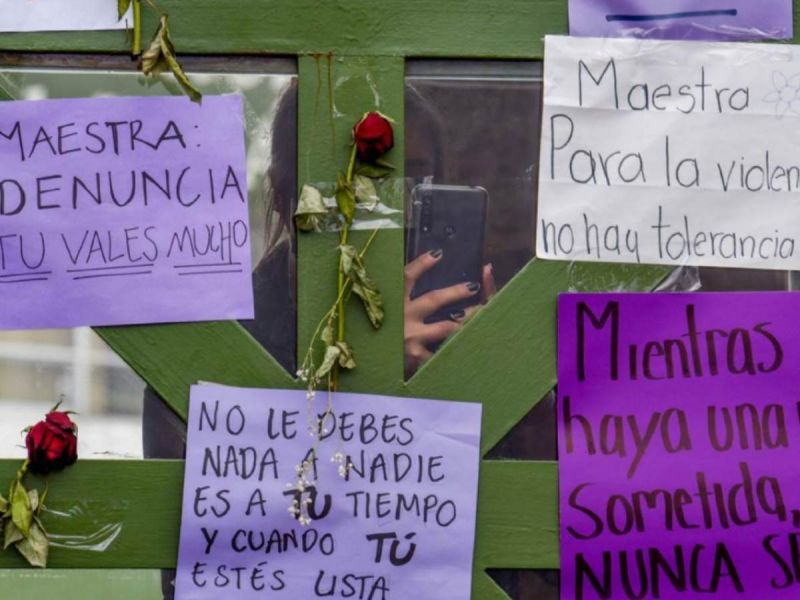 MAESTRA:
DENUNCIA
TU VALES MUCHO
Maestra
Para la violen
no hay tolerancia
NO LE DEBES
NADA A NADIE
ES A TU TIEMPO
Y CUANDO TÚ
ESTÉS LISTA
Mientras
haya una
Sometida,
NUNCA